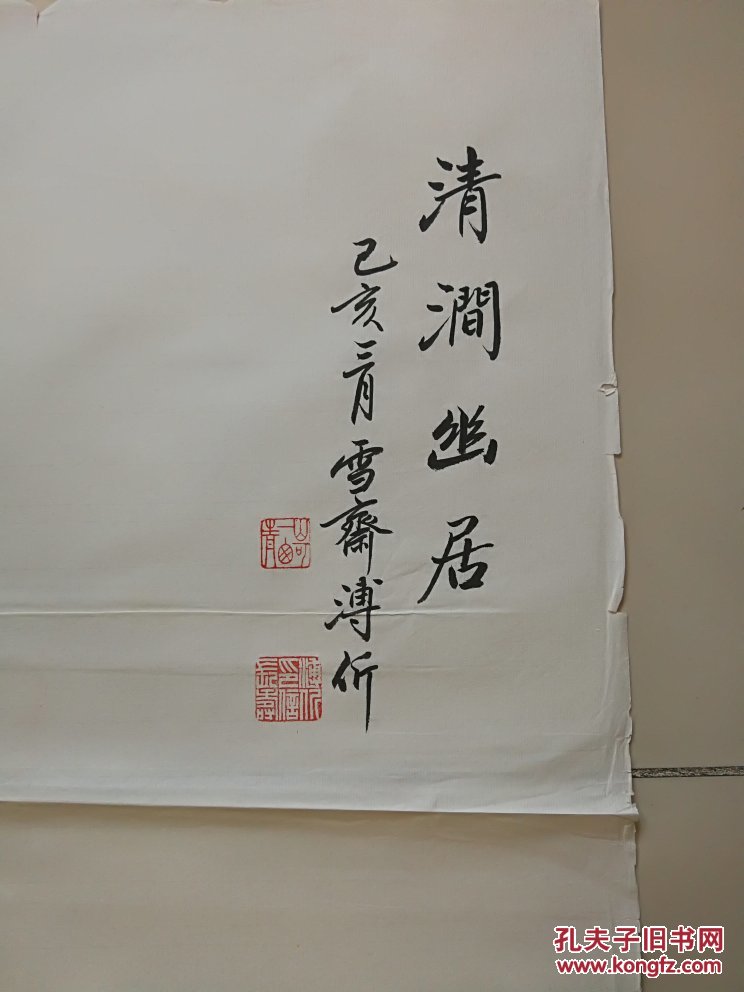 清澗幽居
己亥三月雪齋溥伒
溥伒印信長壽
孔夫子旧书网
www.kongfz.com